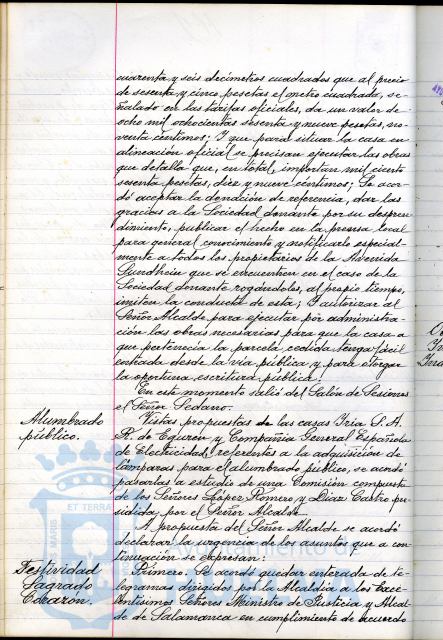 cuarenta y seis decímetros cuadrados que al precio
de sesenta y cinco pesetas el metro cuadrado, se-
ñalado en las tarifas oficiales, da un valor de
ocho mil ochocientas sesenta y nueve pesetas, no-
venta céntimos; Y que para situar la casa en
alineación oficial se precisan ejecutar las obras
que detalla que, en total, importan mil ciento
sesenta pesetas, diez y nueve céntimos; Se acor-
dó aceptar la donación de referencia, dar las
gracias a la Sociedad donante por su despren-
dimiento, publicar el hecho en la prensa local
para general conocimiento y notificarlo especial-
mente a todos los propietarios de la Avenida
Sundheim que se encuentren en el caso de la
Sociedad donante rogándoles, al propio tiempo,
imiten la conducta de esta; Y autorizar al
Señor Alcalde para ejecutar por administra-
ción las obras necesarias para que la casa a
que pertenecía la parcela cedida tenga fácil
entrada desde la vía pública y para otorgar
la oportuna escritura pública.
En este momento salió del Salón de Sesiones
el Señor Sedano.
Alumbrado
público.
Vistas propuestas de las casas Iria S. A.
R. de Eguren y Compañía General Española
de Electricidad, referentes a la adquisición de
lámparas para el alumbrado público, se acordó
pasarlas a estudio de una Comisión compuesta
de los Señores López Romero y Díaz Castro pre-
sidida, por el Señor Alcalde.
A propuesta del Señor Alcalde se acordó
declarar la urgencia de los asuntos que a con-
tinuación se expresan:
Festividad
Sagrado
Corazon.
Primero: Se acordó quedar enterada de te-
legramas dirigidos por la Alcaldía a los Exce-
lentísimos Señores Ministro de Justicia y Alcal-
de de Salamanca en cumplimiento de acuerdo
ET TERRA
MARIS